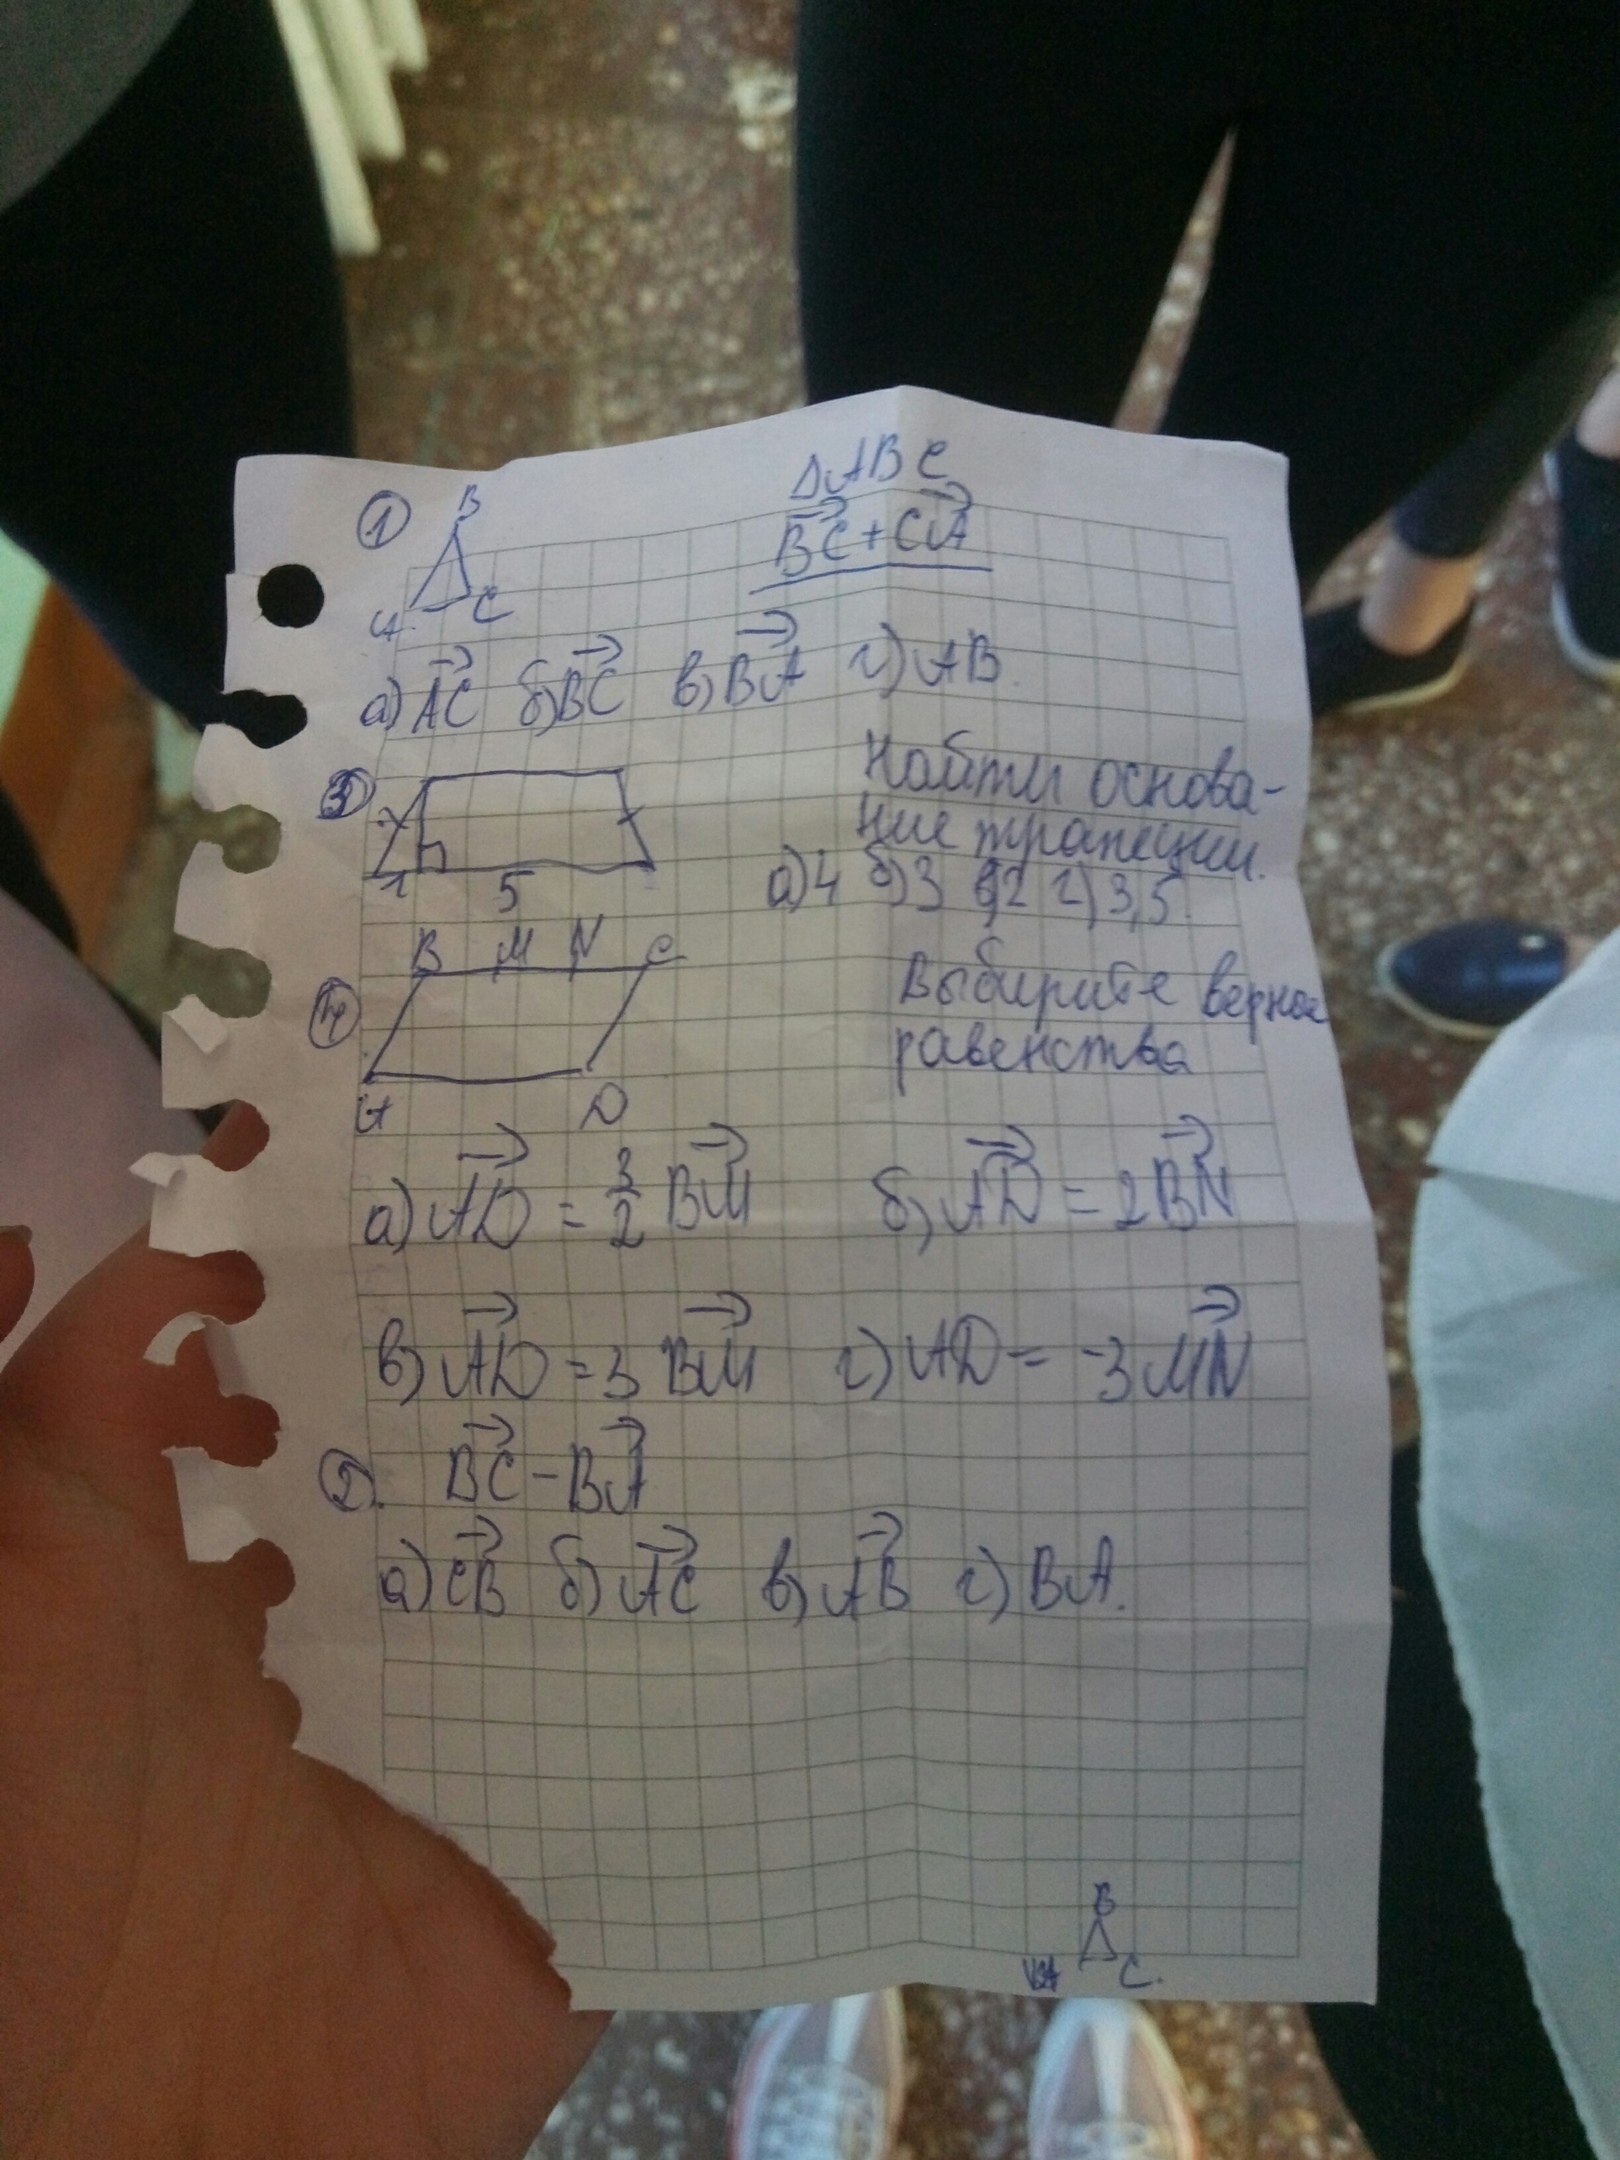 ① B ΔABC
A C BC+CA
а) AC б) BC в) BA г) AB.
③ Найти основа-
ние трапеции.
1 5 а) 4 б) 3 в) 2 г) 3,5.
B M N C
④ Выбирите верное
равенства
A D
а) AD = 3/2 BM б) AD = 2BN
в) AD = 3 BM г) AD = -3 MN
②. BC - BA
а) CB б) AC в) AB г) BA.
B
A C.